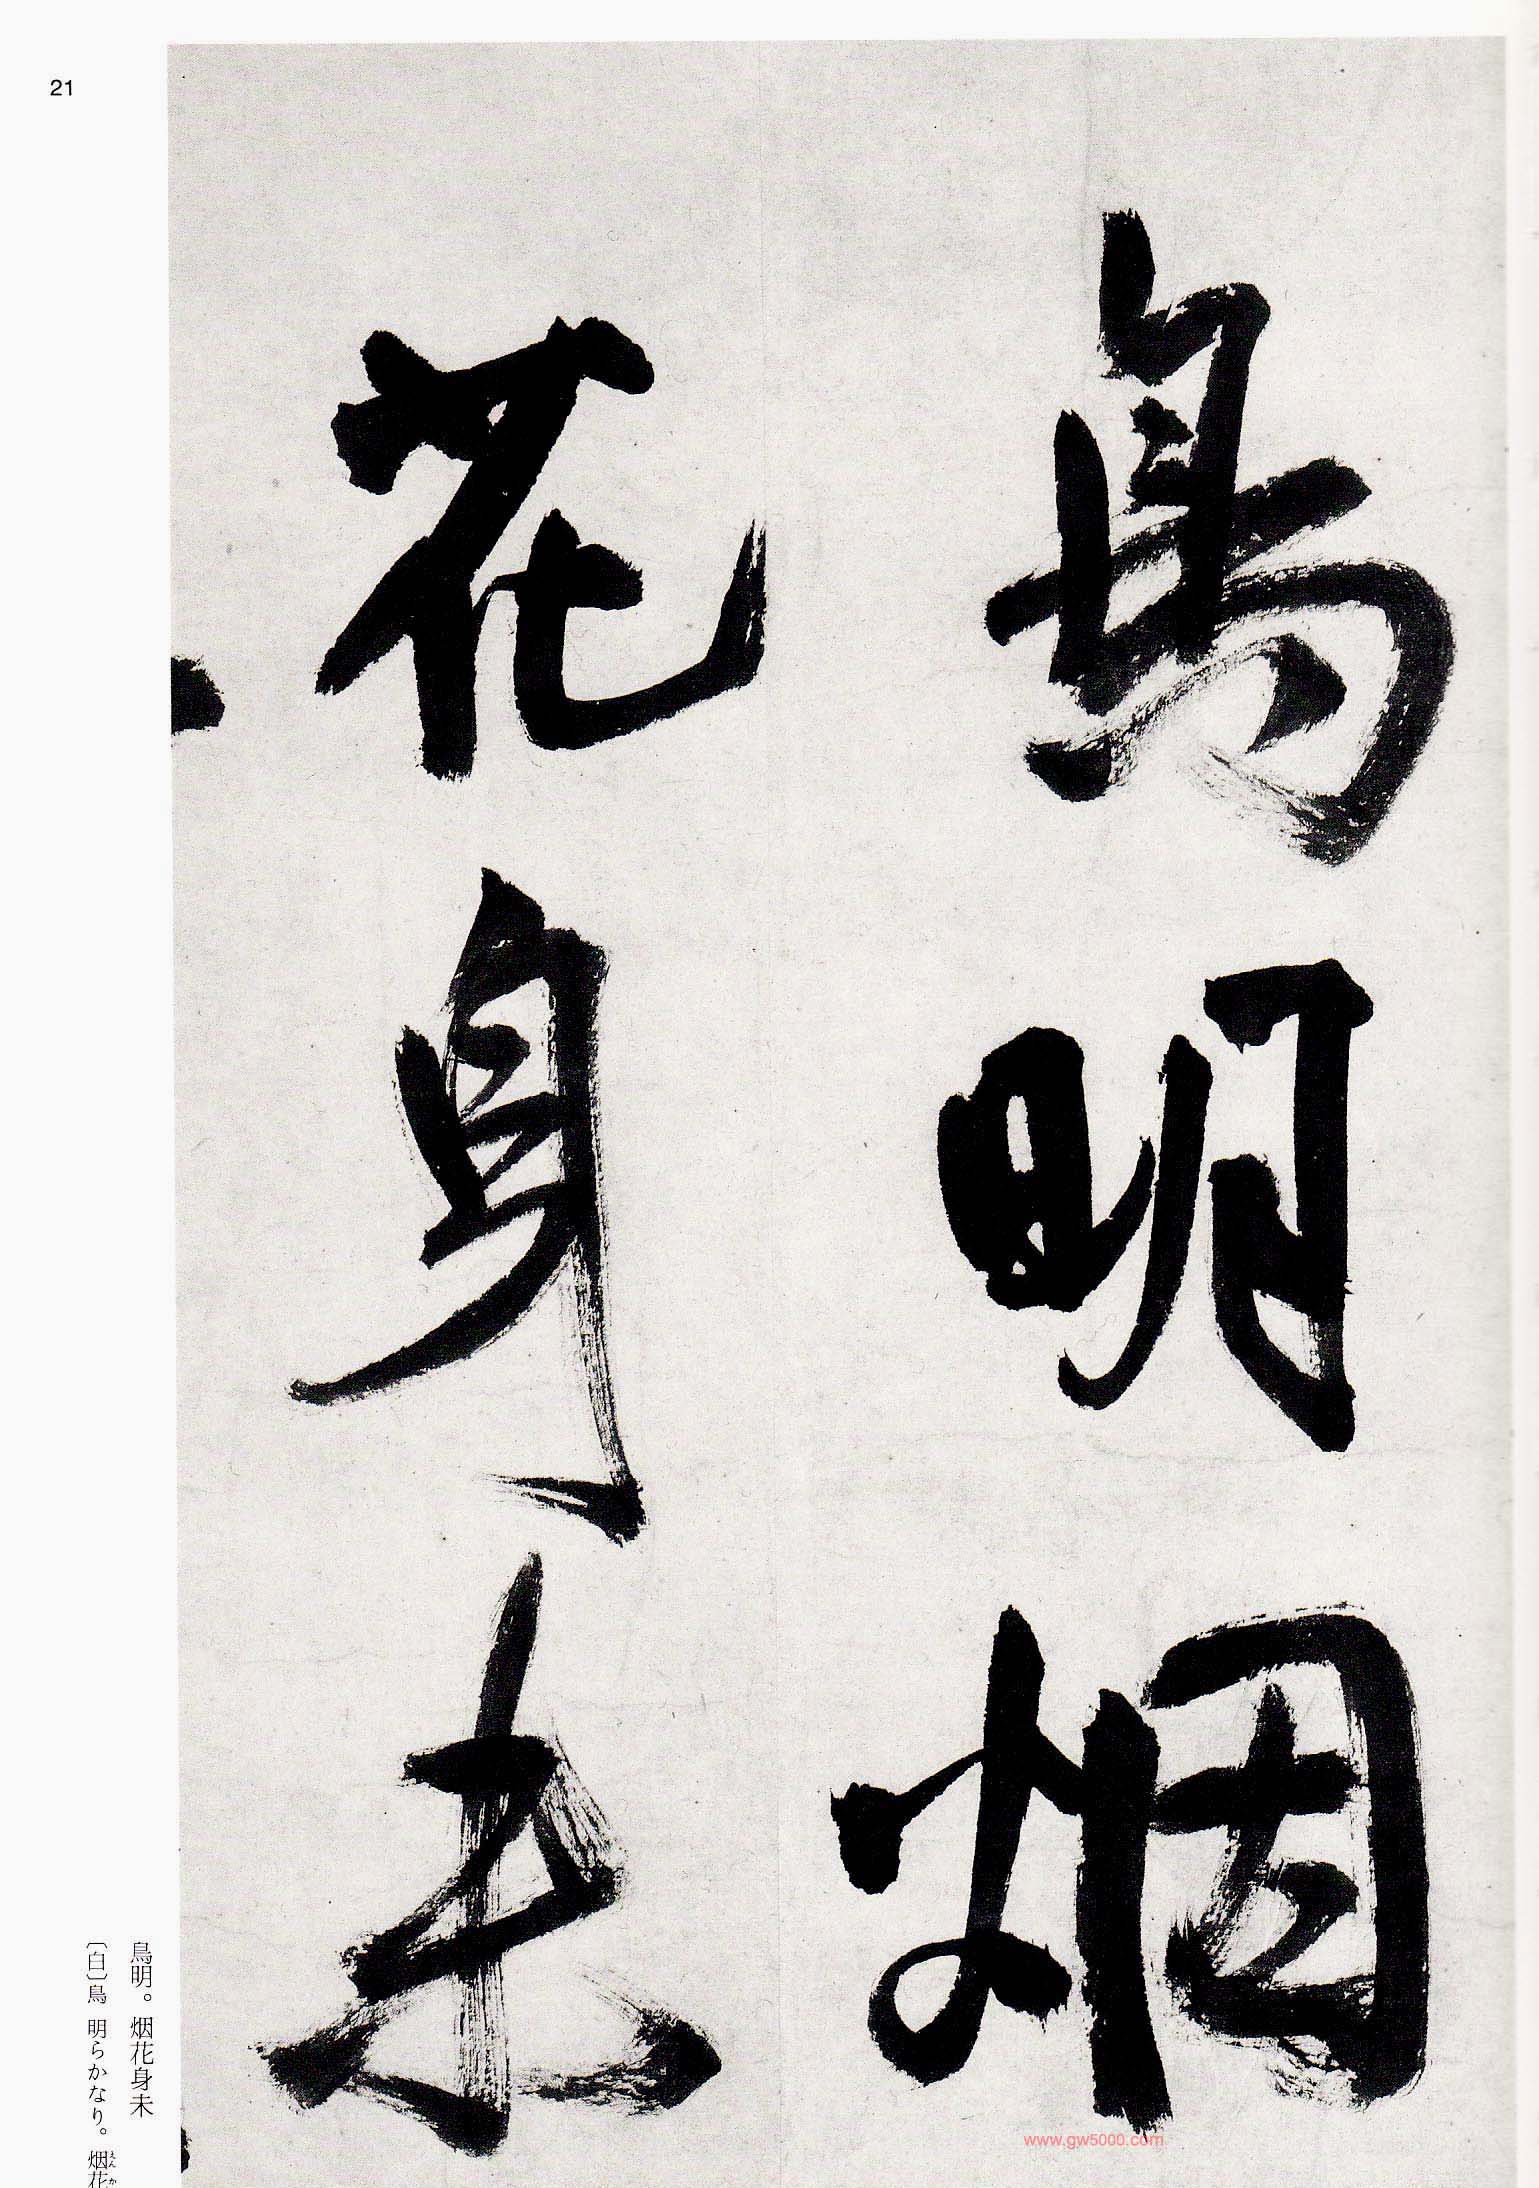 鳥明烟
花身未
21
鳥明。烟花身未
〔白〕鳥 明らかなり。烟花
えんか
www.gw5000.com